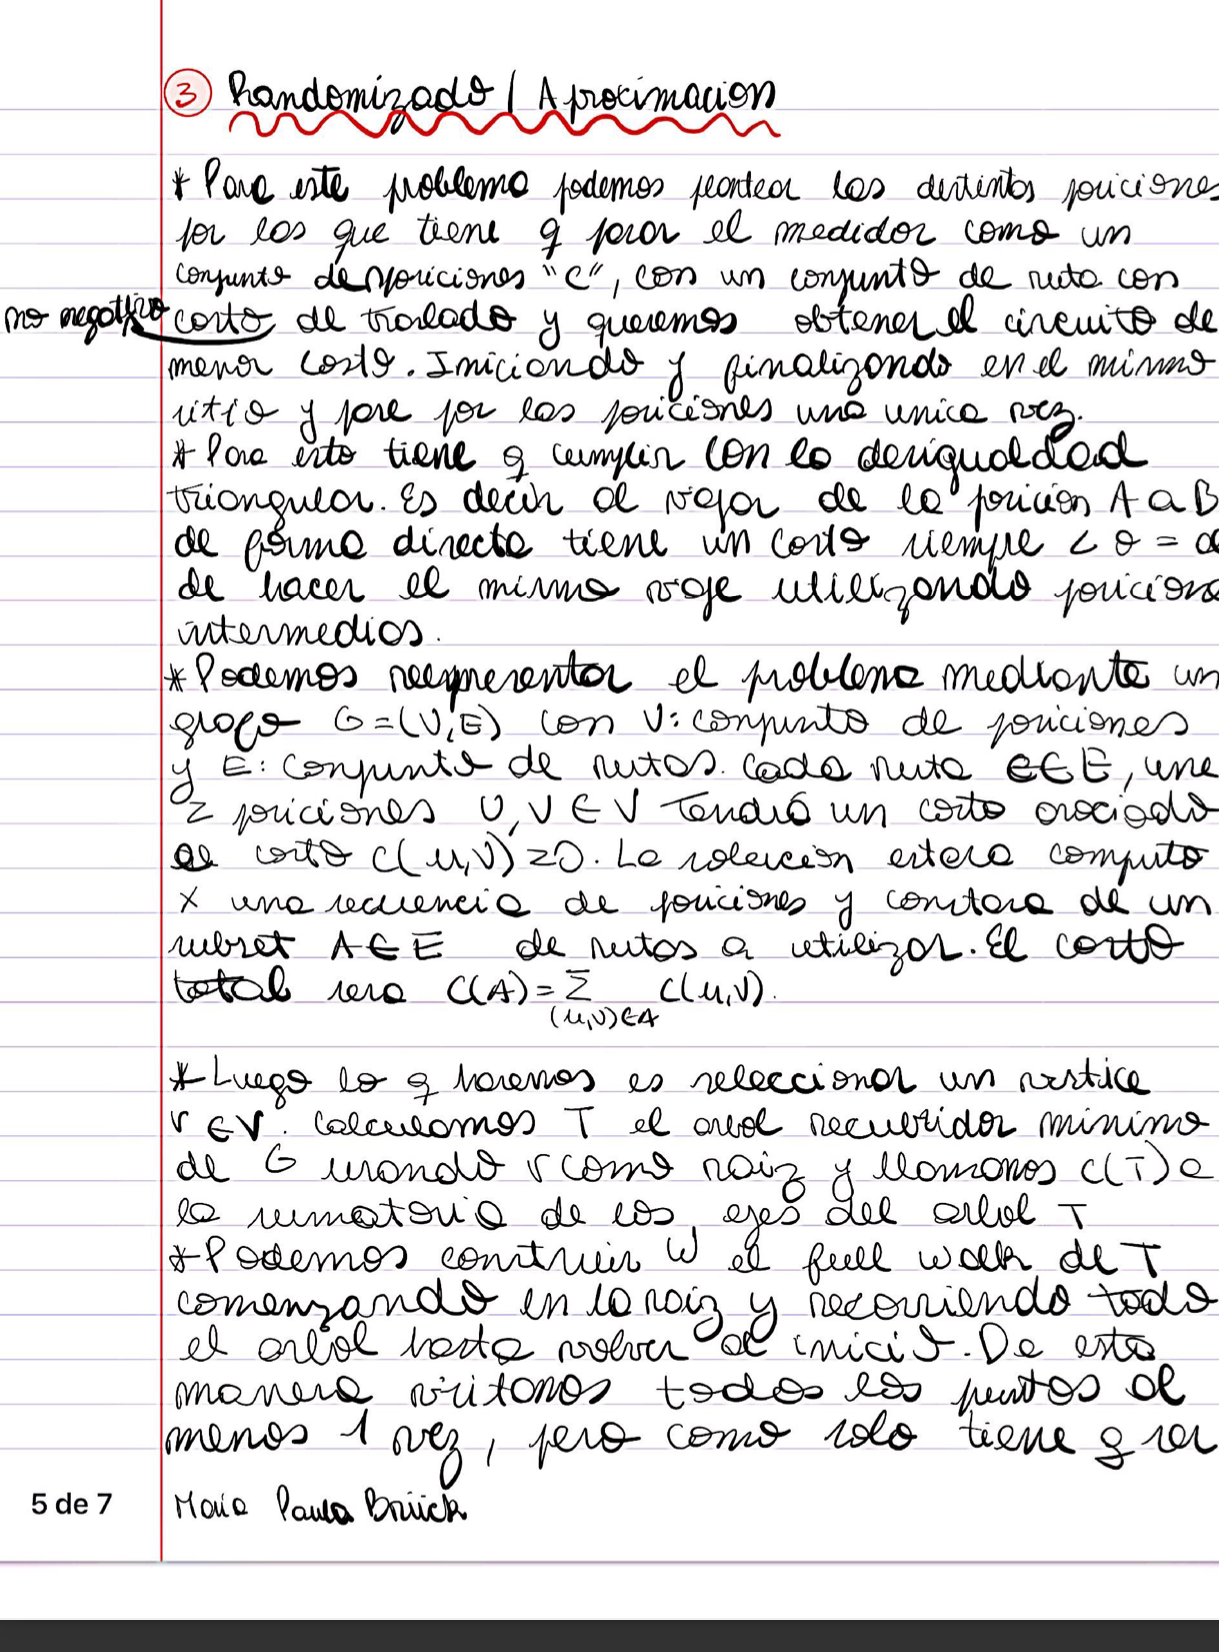 3 Randomizado / Aproximacion
* Para este problema podemos plantear las distintas posiciones
por las que tiene q pasar el medidor como un
conjunto de posiciones "C", con un conjunto de ruta con
no negativo costo de traslado y queremos obtener el circuito de
menor costo. Iniciando y finalizando en el mismo
sitio y pase por las posiciones una unica vez.
* Para esto tiene q cumplir con la desigualdad
triangular. Es decir al viajar de la posicion A a B
de forma directa tiene un costo siempre < o = al
de hacer el mismo viaje utilizando posiciones
intermedias.
* Podemos representar el problema mediante un
grafo G=(V,E) con V: conjunto de posiciones
y E: conjunto de rutas. Cada ruta e∈E, une
2 posiciones U, V ∈ V Tendrá un costo asociado
al costo C(u,v)≥0. La solucion estara compuesta
x una secuencia de posiciones y constara de un
subset A∈E de rutas a utilizar. El costo
total sera C(A)= Σ C(u,v).
(u,v)∈A
* Luego lo q haremos es seleccionar un vertice
r ∈ V. Calculamos T el arbol recubridor minimo
de G usando r como raiz y llamamos C(T) a
la sumatoria de los ejes del arbol T
* Podemos construir W el full walk de T
comenzando en la raiz y recorriendo todo
el arbol hasta volver al inicio. De esta
manera visitamos todos los puntos al
menos 1 vez, pero como solo tiene q ser
5 de 7 Maria Paula Brück